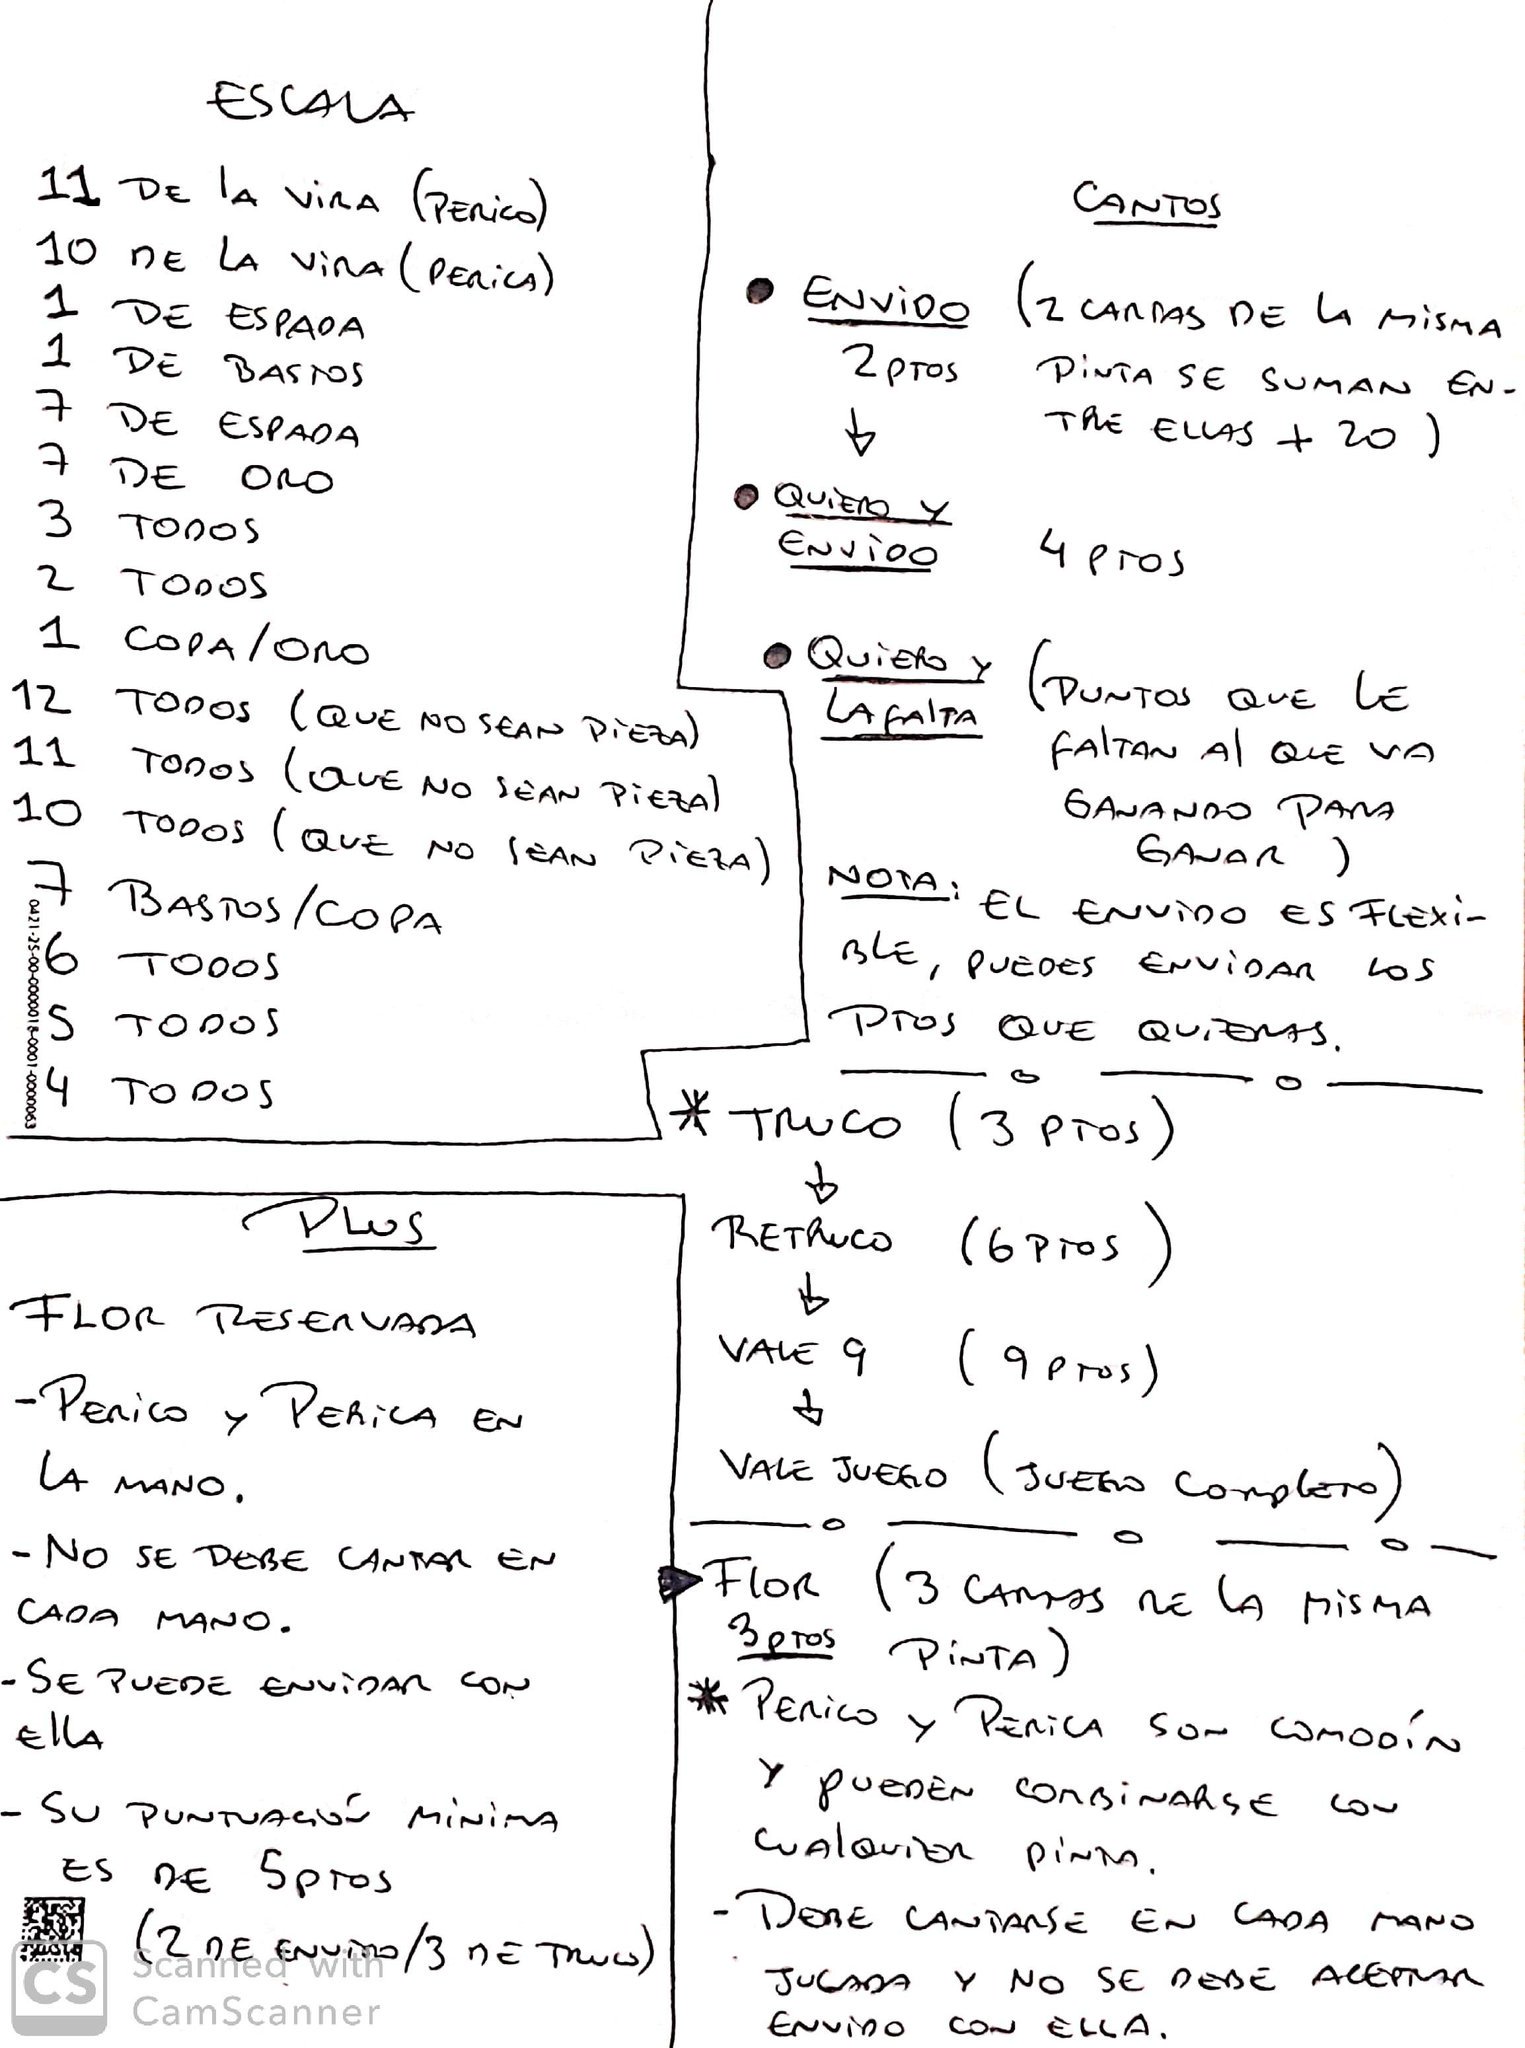 ESCALA
11 DE LA VIRA (PERICO)
10 DE LA VIRA (PERICA)
1 DE ESPADA
1 DE BASTOS
7 DE ESPADA
7 DE ORO
3 TODOS
2 TODOS
1 COPA/ORO
12 TODOS (QUE NO SEAN PIEZA)
11 TODOS (QUE NO SEAN PIEZA)
10 TODOS (QUE NO SEAN PIEZA)
7 BASTOS/COPA
6 TODOS
5 TODOS
4 TODOS
0421-25-00-0000018-0001-0000063
CANTOS
• ENVIDO (2 CARTAS DE LA MISMA
2 PTOS PINTA SE SUMAN EN-
↓ TRE ELLAS + 20)
• QUIERO Y
ENVIDO 4 PTOS
• QUIERO Y (PUNTOS QUE LE
LA FALTA FALTAN AL QUE VA
GANANDO PARA
GANAR)
NOTA: EL ENVIDO ES FLEXI-
BLE, PUEDES ENVIDAR LOS
PTOS QUE QUIERAS.
* TRUCO (3 PTOS)
↓
RETRUCO (6 PTOS)
↓
VALE 9 (9 PTOS)
↓
VALE JUEGO (JUEGO COMPLETO)
FLOR (3 CARTAS DE LA MISMA
3 PTOS PINTA)
* PERICO Y PERICA SON COMODÍN
Y PUEDEN COMBINARSE CON
CUALQUIER PINTA.
- DEBE CANTARSE EN CADA MANO
JUGADA Y NO SE DEBE ACEPTAR
ENVIDO CON ELLA.
PLUS
FLOR RESERVADA
- PERICO Y PERICA EN
LA MANO.
- NO SE DEBE CANTAR EN
CADA MANO.
- SE PUEDE ENVIDAR CON
ELLA
- SU PUNTUACIÓN MINIMA
ES DE 5 PTOS
(2 DE ENVIDO/3 DE TRUCO)
CS Scanned with
CamScanner